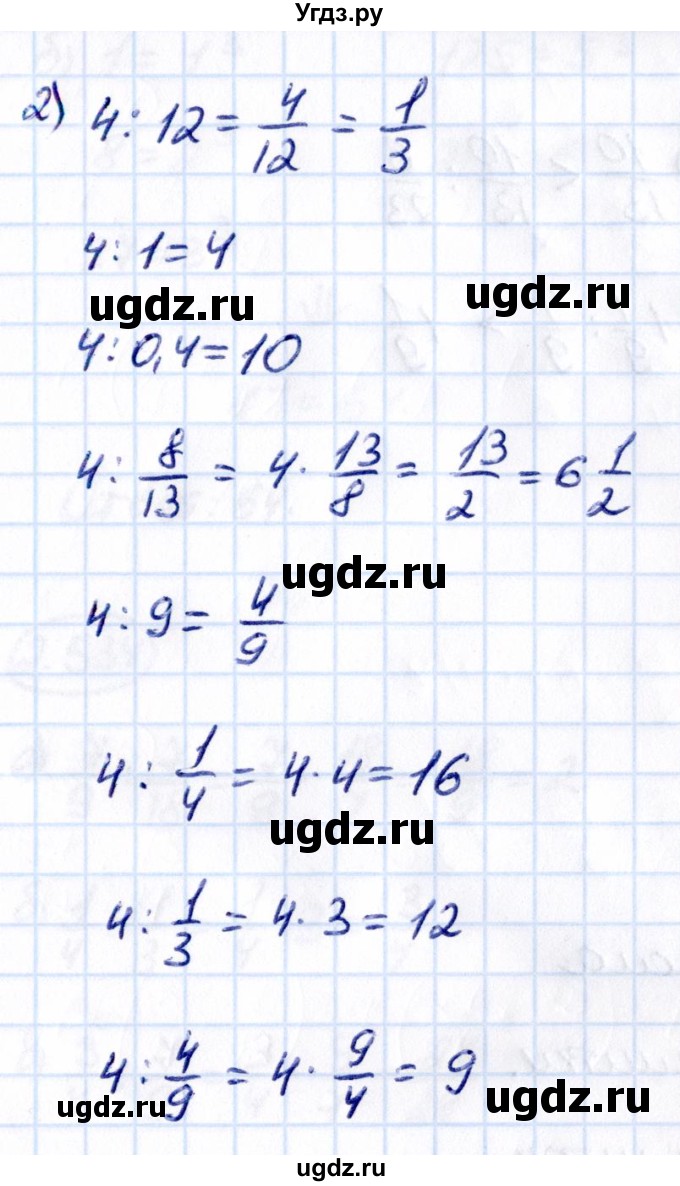 Угдз.ру
2) 4 : 12 = 4/12 = 1/3
4 : 1 = 4
ugdz.ru ugdz.ru
4 : 0,4 = 10
4 : 8/13 = 4 · 13/8 = 13/2 = 6 1/2
ugdz.ru
4 : 9 = 4/9
4 : 1/4 = 4 · 4 = 16
ugdz.ru
4 : 1/3 = 4 · 3 = 12
4 : 4/9 = 4 · 9/4 = 9
ugdz.ru ugdz.ru
ugdz.ru